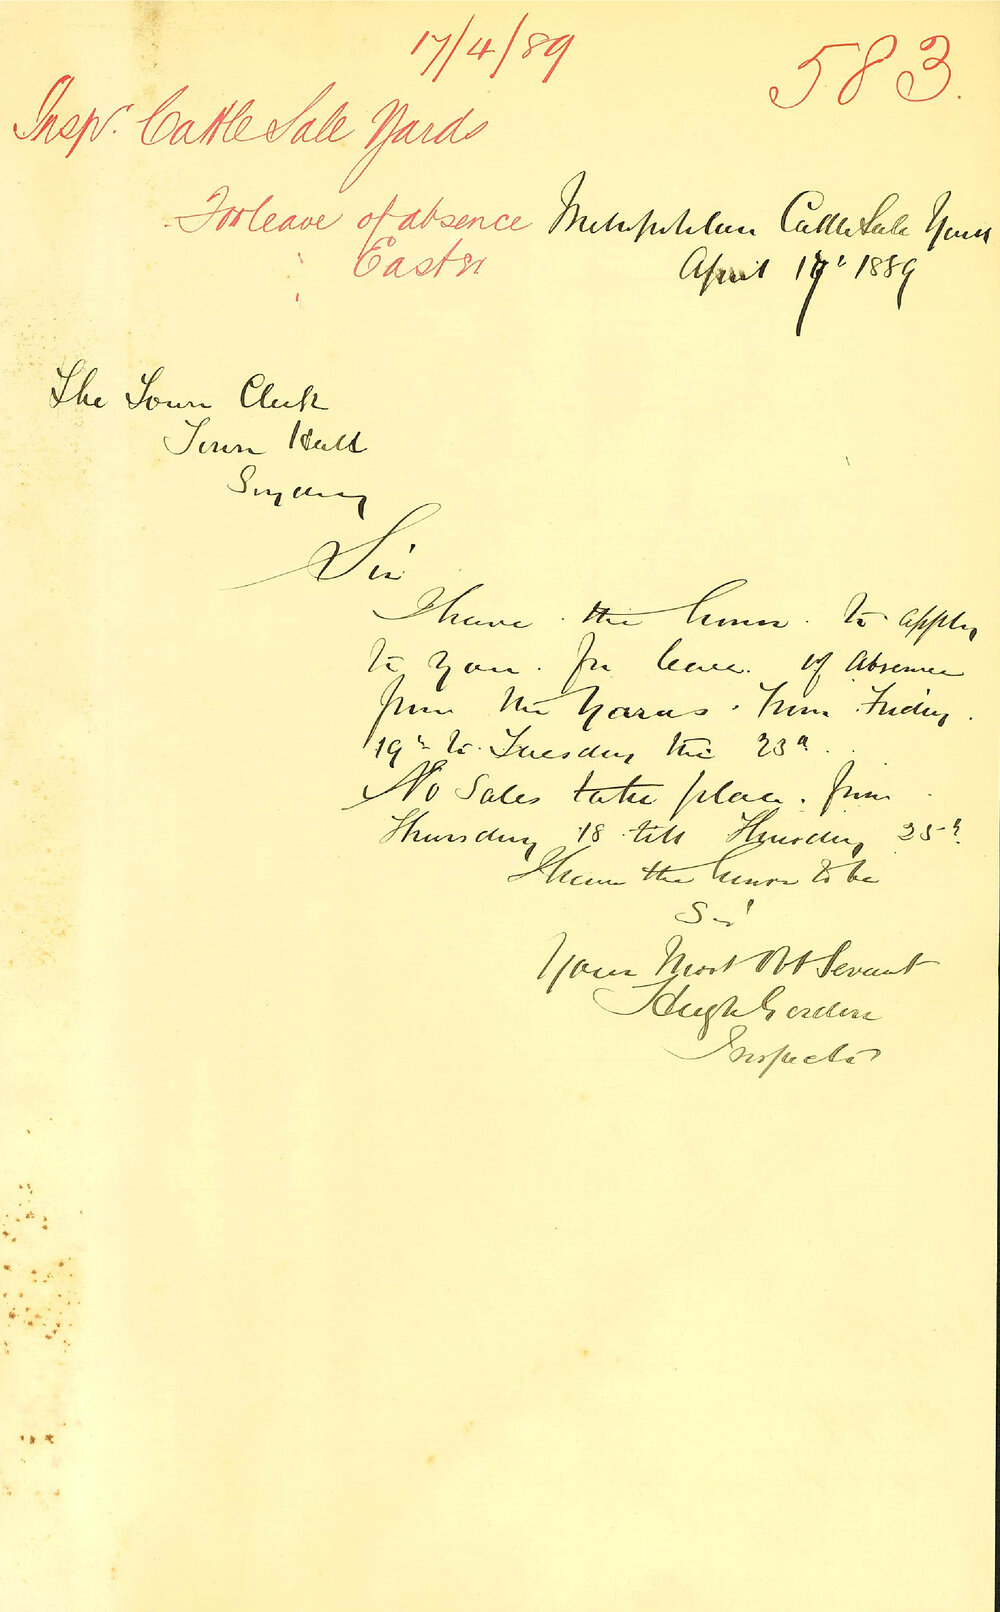 17/4/89
583.
Inspr. Cattle Sale Yards
For leave of absence
Easter
Metropolitan Cattle Sale Yards
April 17th 1889
The Town Clerk
Town Hall
Sydney
Sir
I have the honor to apply
to you for leave of absence
from the Yards from Friday
19th to Tuesday the 23d.
No Sales take place from
Thursday 18 till Thursday 25th.
I have the honor to be
Sir
Your Most Obt Servant
Hugh Gordon
Inspector